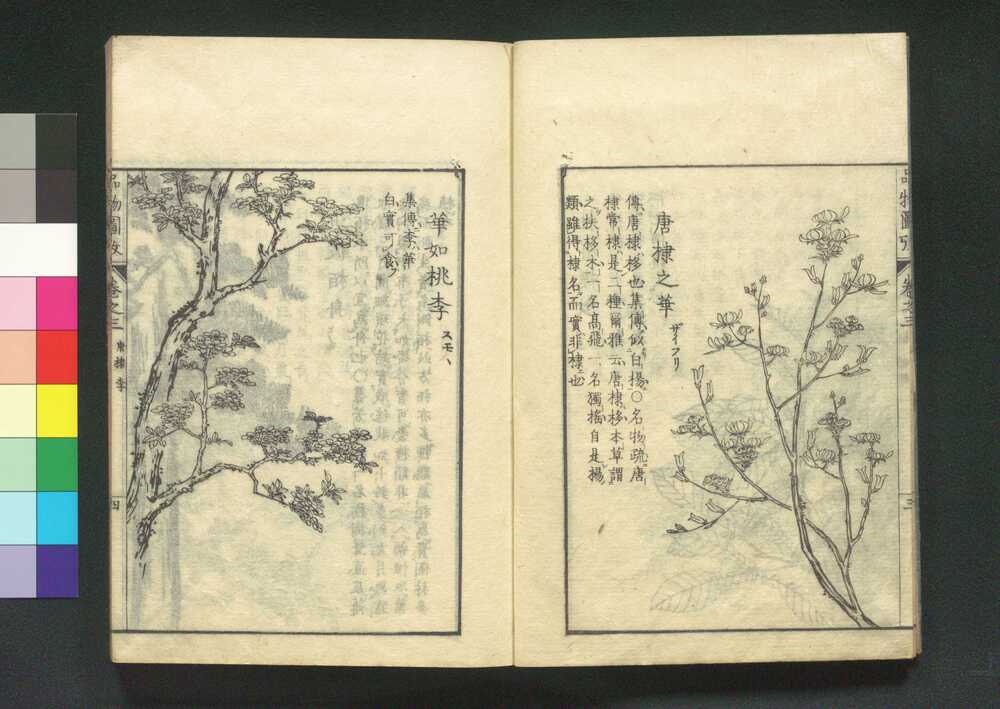 唐棣之華
ザイフリ
傳唐棣栘也集傳似白揚〇名物疏唐
棣常棣是二種爾雅云唐棣栘本草謂
之扶栘木一名高飛一名獨搖自是揚
類雖得棣名而實非棣也
品物圖攷
卷之三
三
華如桃李
スモヽ
集傳李華
白實可食
品物圖攷
卷之三
唐棣 李
四